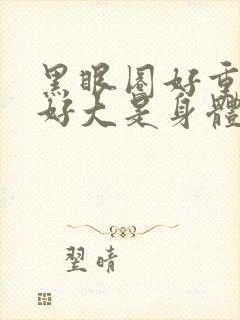 黑眼圈好重
好大是身體
翌晴